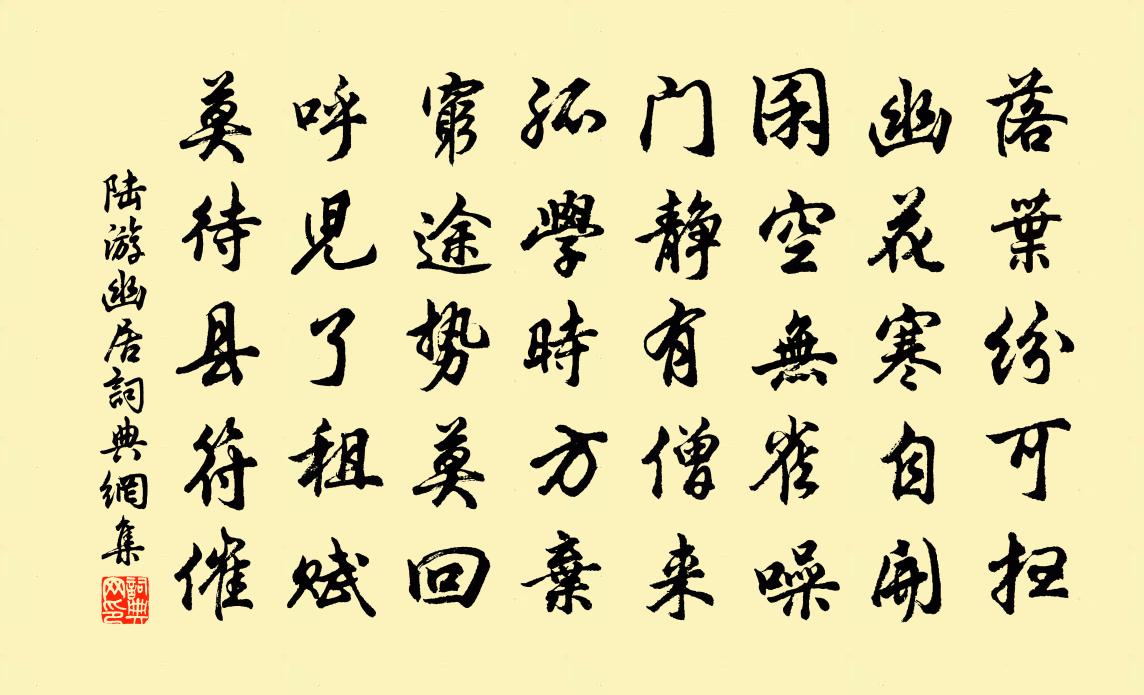 落葉紛可扫
幽花寒自開
囷空無雀噪
门静有僧来
孤學時方棄
窮途势莫回
呼児了租赋
莫待县符催
陆游幽居詞典網集
詞典网印